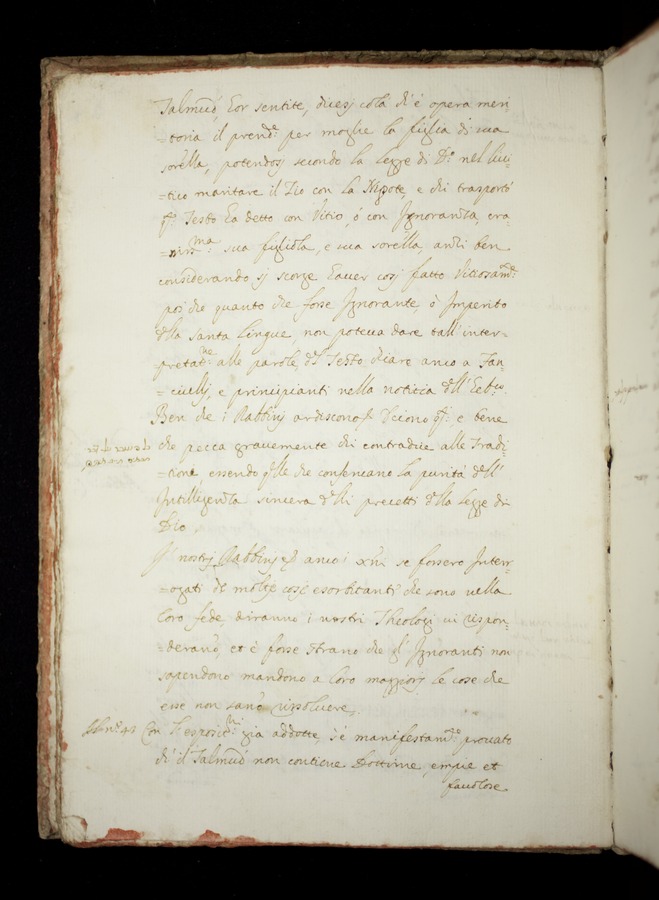 Talmud, hor sentite, dicesi cola ch'è opera meri-
=toria il prend.e per moglie la figlia di sua
sorella, potendosi secondo la legge di D.o nel Levi-
=tico maritare il Zio con la Nipote, e chi trasportò
q.o Testo ha detto con Vitio, ò con Ignoranza, era-
sua figliola, e sua sorella, anzi ben
considerando si scorge haver così fatto Vitiosam.e
poi che quanto che fosse Ignorante, ò Imperito
d'lla santa lingua, non poteva dare tall' inter-
pretat.ne alle parole d'l Testo chiare anco a fan-
=ciulli, e principianti nella notitia d'll' Eeb.co
Ben che i Rabbini ardiscono dicono q.i e bene
che pecca gravemente chi contradice alle Tradi-
=tione essendo q'lle che conservano la purità d'll'
Intilligenza sincera d'lli precetti d'lla legge di
Dio
I nostri Rabbini anco i xñi se fossero Inter-
=ogati d'l molte cose esorbitanti che sono nella
loro fede diranno i nostri Theologi vi rispon-
=deranò, et è forse strano che gl' Ignoranti non
sapendono mandono a loro maggiori le cose che
esse non sanò rissolvere.
n.o 43 Con l'esposit.ni gia addotte, s'è manifestam.e provato
ch' il Talmud non contiene Dottrine, empie et
favolose